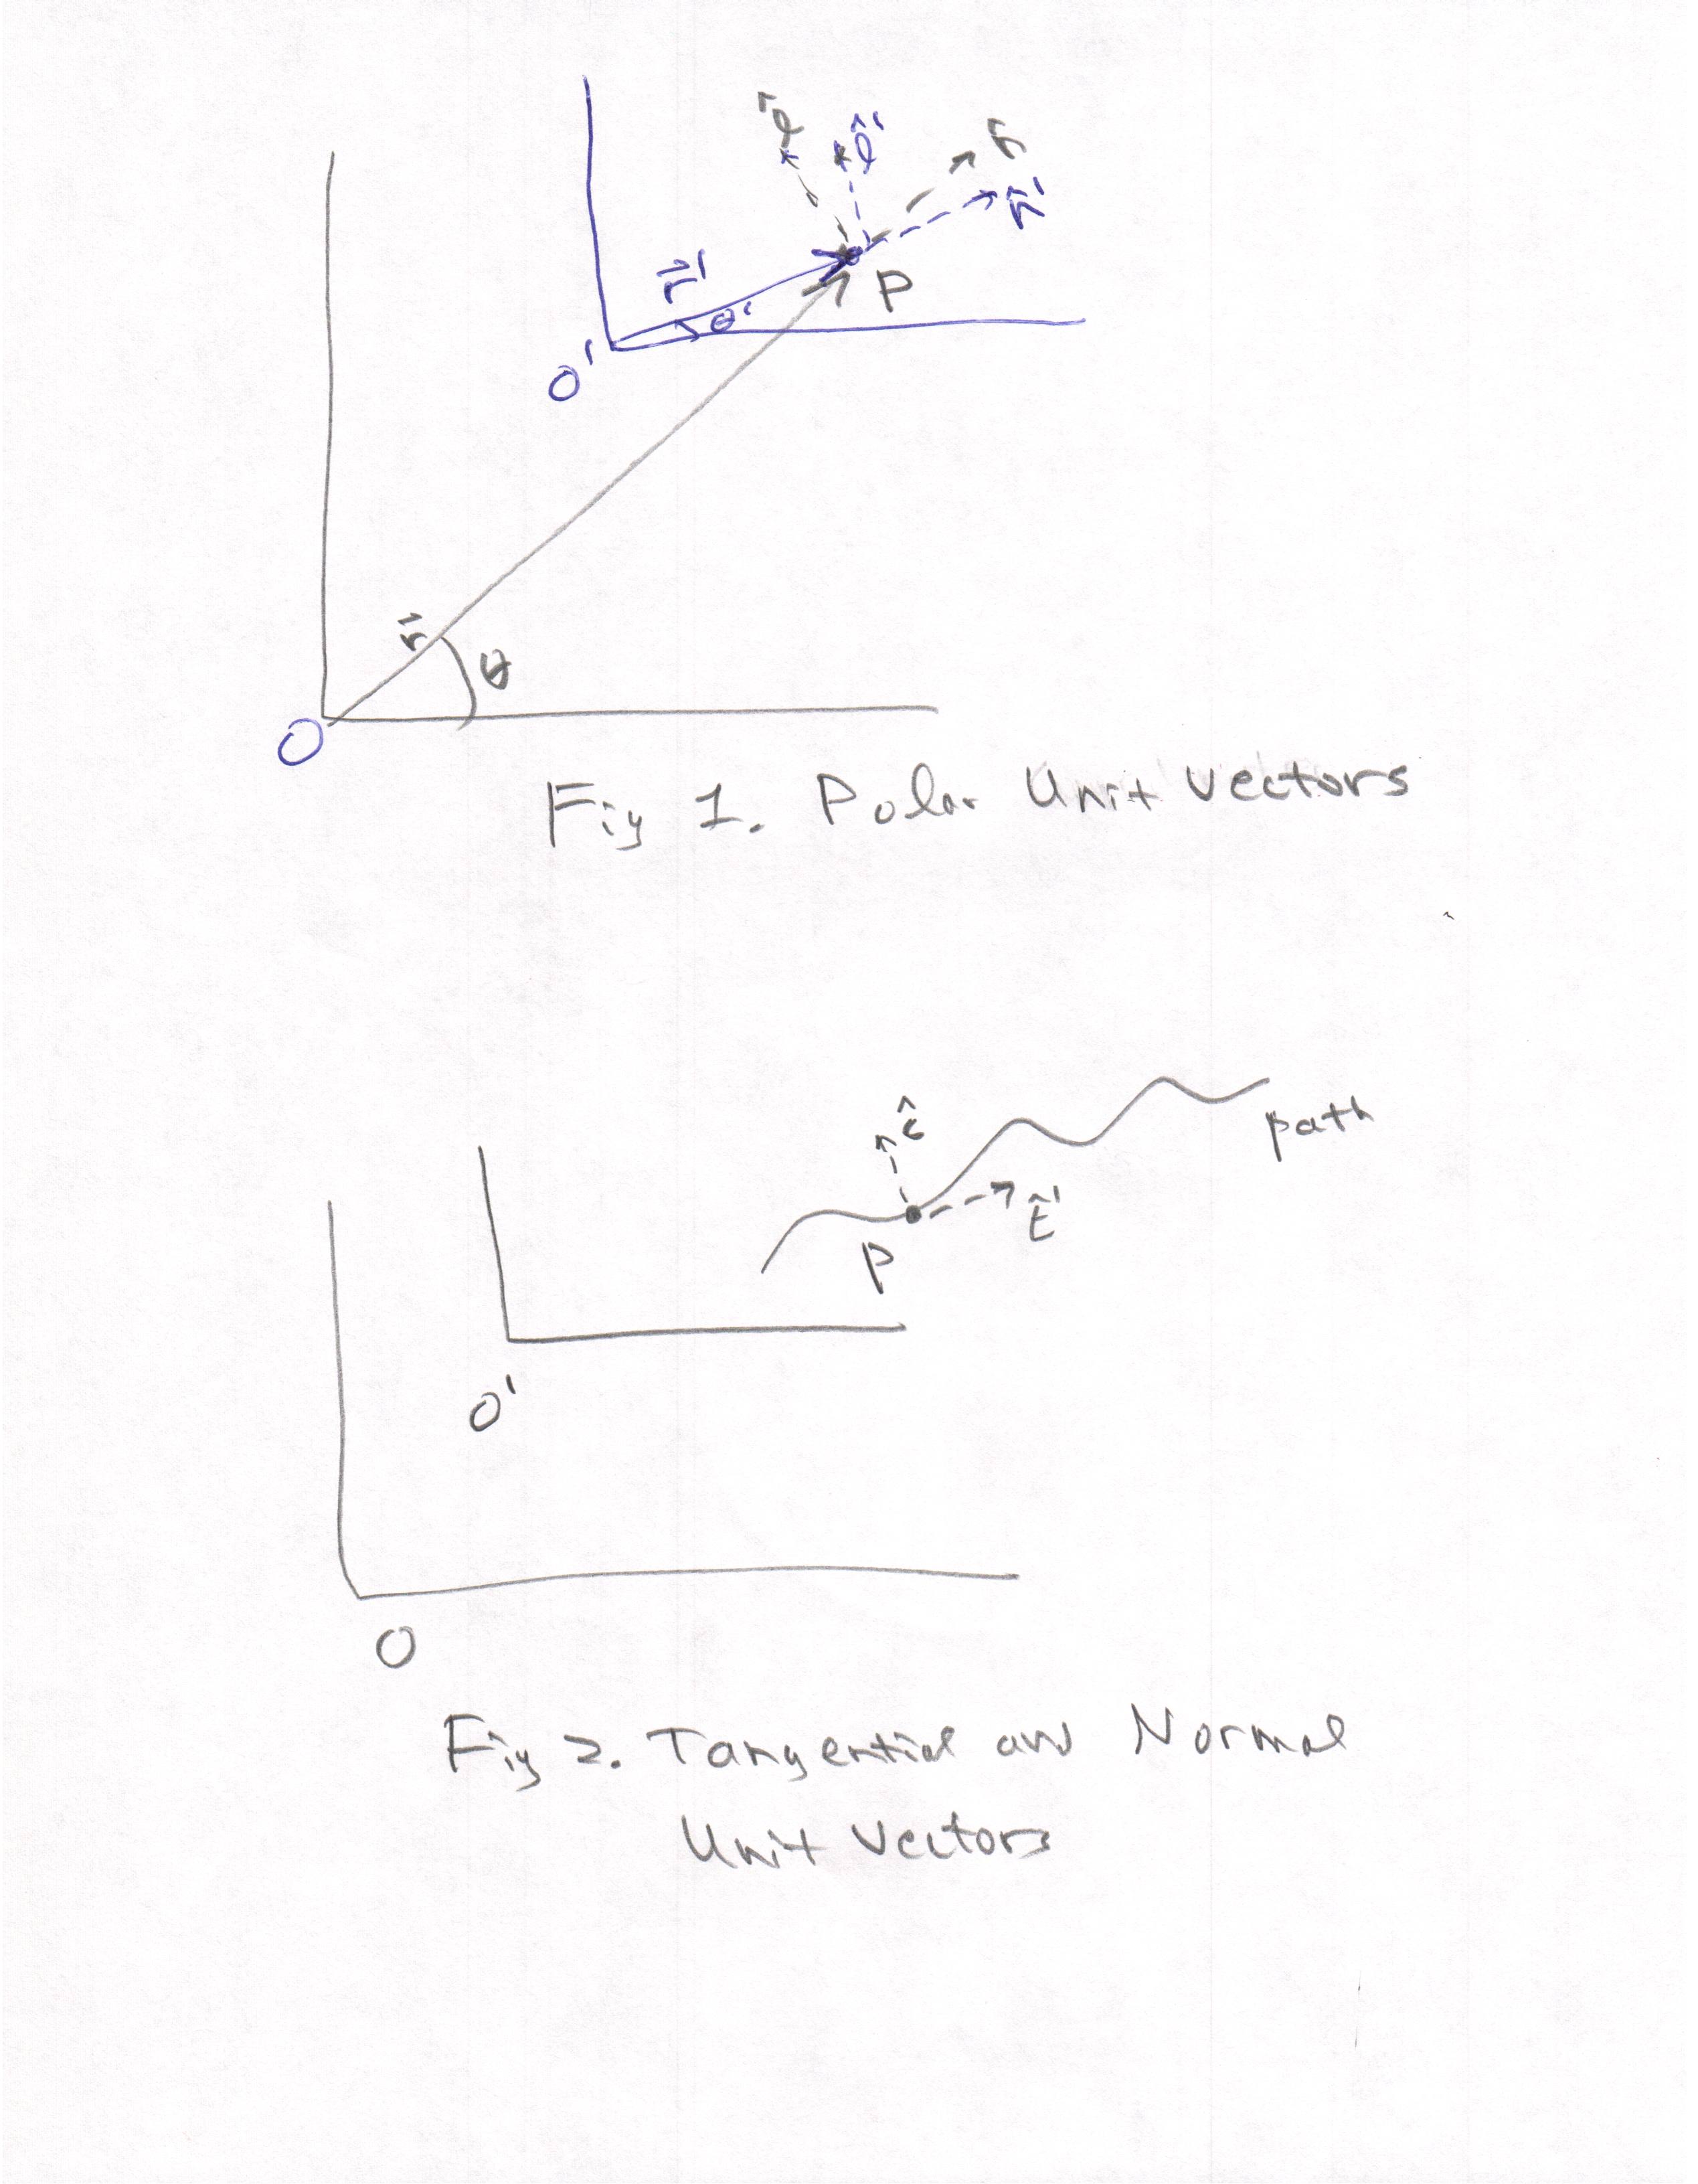 l̂ l̂' r̂
r̂'
r⃗' θ' P
O'
r⃗ θ
O
Fig 1. Polar Unit Vectors
path
t̂'
P
O'
O
Fig 2. Tangential and Normal
Unit Vectors